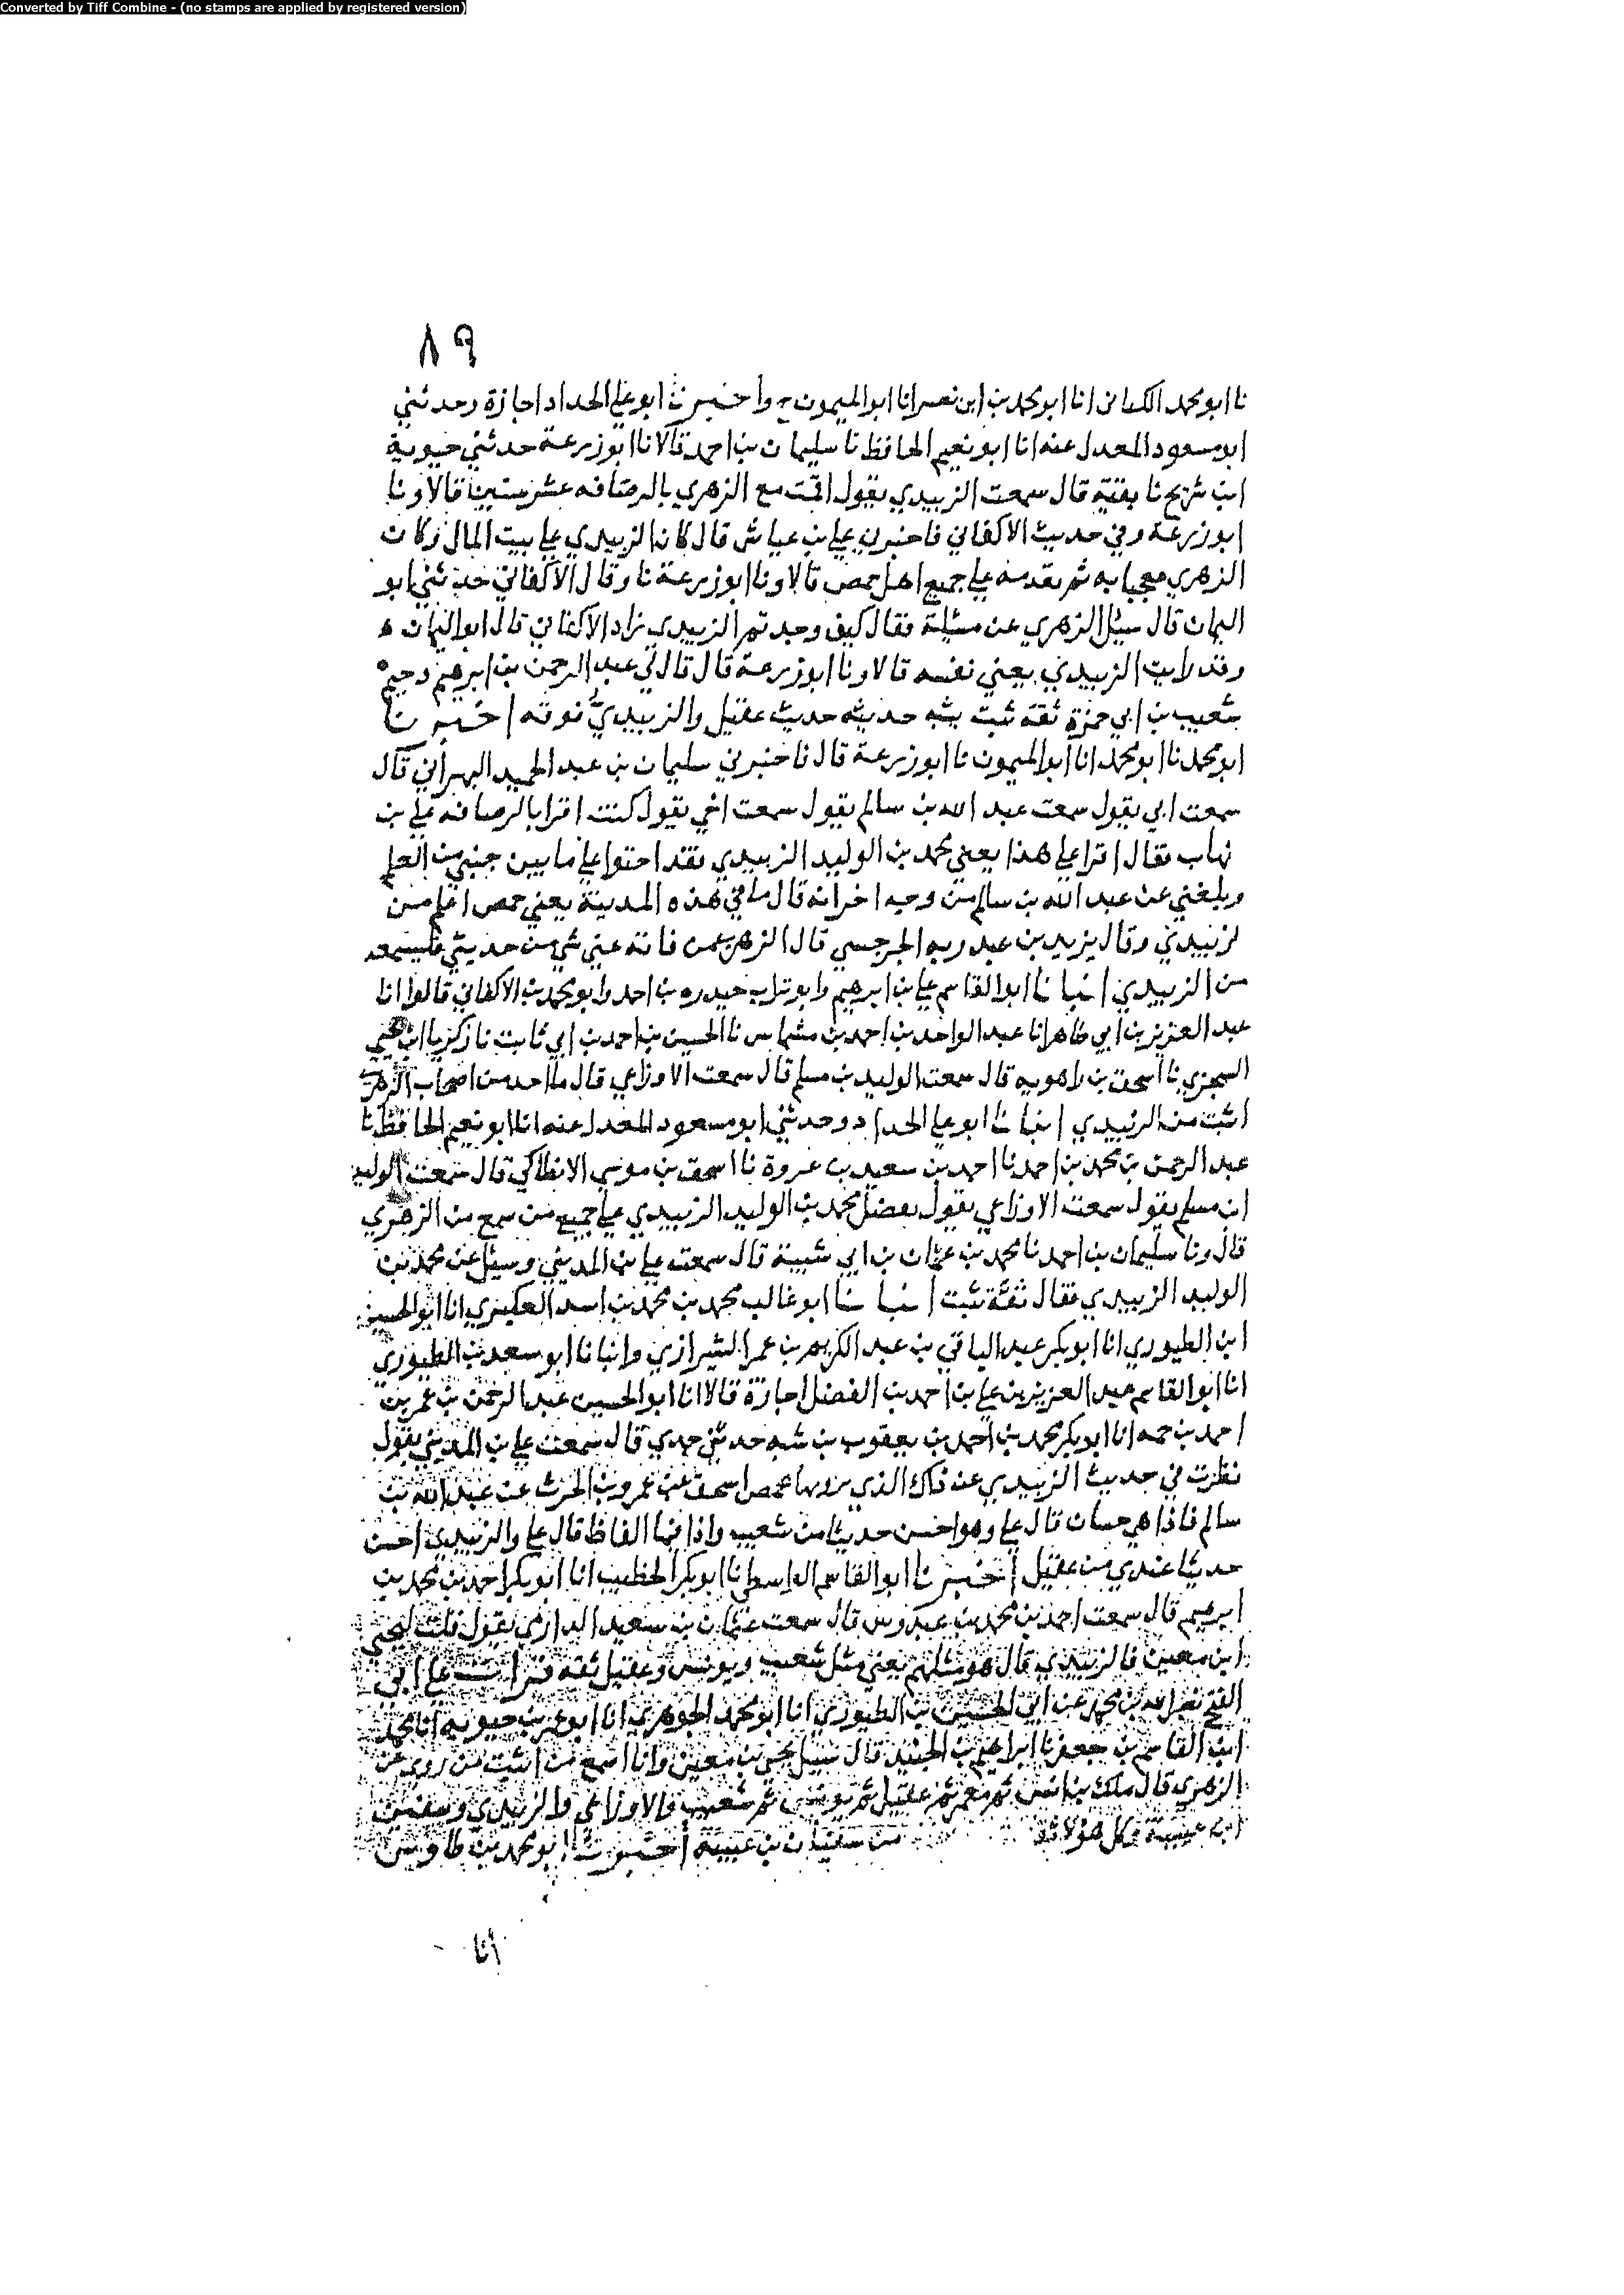 Converted by Tiff Combine - (no stamps are applied by registered version)
٨٩
نا ابو محمد الكتاني انا ابو محمد بن ابي نصر انا ابو الميمون ح واخبرنا ابو علي الحداد اجازة وحدثني
ابو مسعود المعدل عنه انا ابو نعيم الحافظ نا سليمان بن احمد قالا نا ابو زرعة حدثني حيوية
ابن شريح نا بقية قال سمعت الزبيدي يقول اقمت مع الزهري بالرصافه عشر سنين قالا ونا
ابو زرعة وفي حديث الاكفاني فاخبرني علي بن عياش قال كان الزبيدي علي بيت المال وكان
الزهري معجبا به ثم يقدمه علي جميع اهل حمص قالا ونا ابو زرعة نا وقال الاكفاني حدثني ابو
اليمان قال سيل الزهري عن مسئلة فقال كيف وعندكم الزبيدي زاد الاكفاني قال ابو اليمان
وقد رايت الزبيدي يعني نفسه قالا ونا ابو زرعة قال قال لي عبد الرحمن بن ابرهيم دحيم
شعيب بن ابي حمزة ثقة ثبت يشبه حديثه حديث عقيل والزبيدي فوقه اخبرنا
ابو محمد نا ابو محمد انا ابو الميمون نا ابو زرعة قال فاخبرني سليمان بن عبد الحميد البهراني قال
سمعت ابي يقول سمعت عبد الله بن سالم يقول سمعت اخي يقول كنت اقرا بالرصافه علي بن
شهاب فقال اقرا علي هذا يعني محمد بن الوليد الزبيدي فقد احتوا علي ما بين جنبي من العلم
وبلغني عن عبد الله بن سالم من وجه اخر انه قال ما في هذه المدينة يعني حمص اعلم من
لزبيدي وقال يزيد بن عبد ربه الجرجسي قال الزهري من فاته عني شي من حديثي فليسمعه
من الزبيدي انبانا ابو القاسم علي بن ابرهيم وابو تراب حيدره بن احمد وابو محمد بن الاكفاني قالوا انا
عبد العزيز بن ابي طاهر انا عبد الواحد بن احمد بن مشماس نا الحسين بن احمد بن ابي ثابت نا زكريا ابن يحيي
السجزي نا اسحق بن راهويه قال سمعت الوليد بن مسلم قال سمعت الاوزاعي قال ما احد من اصحاب الزهري
اثبت من الزبيدي انبانا ابو علي الحداد وحدثني ابو مسعود المعدل عنه انا ابو نعيم الحافظ نا
عبد الرحمن بن محمد بن احمد نا احمد بن سعيد بن عروة نا اسحق بن موسي الانطاكي قال سمعت الوليد
ابن مسلم يقول سمعت الاوزاعي يقول يفضل محمد بن الوليد الزبيدي علي جميع من سمع من الزهري
قال ونا سليمان بن احمد نا محمد بن عثمان بن ابي شيبة قال سمعت علي بن المديني وسيل عن محمد بن
الوليد الزبيدي فقال ثقة ثبت انبانا ابو غالب محمد بن محمد بن اسد العكبري انا ابو الحسين
ابن الطيوري انا ابو بكر عبد الباقي بن عبد الكريم بن عمر الشيرازي وانبانا ابو سعد بن الطيوري
انا ابو القاسم عبد العزيز بن علي بن احمد بن الفضل اجازة قالا انا ابو الحسين عبد الرحمن بن عمر بن
احمد بن حمه انا ابو بكر محمد بن احمد بن يعقوب بن شبه حدثني جدي قال سمعت علي بن المديني يقول
نظرت في حديث الزبيدي عند ذاك الذي يرويها بحمص اسحق عن عمرو بن الحرث عن عبد الله بن
سالم فاذا هي حسان قال علي وهو احسن حديثا من شعيب واذا فيها الفاظ قال علي والزبيدي احسن
حديثا عندي من عقيل اخبرنا ابو القاسم الواسطي نا ابو بكر الخطيب انا ابو بكر احمد بن محمد بن
ابرهيم قال سمعت احمد بن محمد بن عبدوس قال سمعت عثمان بن سعيد الدارمي يقول قلت ليحيي
ابن معين فالزبيدي قال هو مثلهم يعني مثل شعيب ويونس وعقيل ثقه قرات علي ابي
الفتح نصر الله بن محمد عن ابي الحسين بن الطيوري انا ابو محمد الجوهري انا ابو عمر بن حيويه انا محمد
ابن القاسم بن جعفر نا ابراهيم بن الجنيد قال سيل يحيي بن معين وانا اسمع من اثبت من روي عن
الزهري قال ملك بن انس ثم معمر ثم عقيل ثم يونس ثم شعيب والاوزاعي والزبيدي وسفين
ابن عيينة وكل هولا ثقه من سفيان بن عيينة اخبرنا ابو محمد بن طاوس
انا